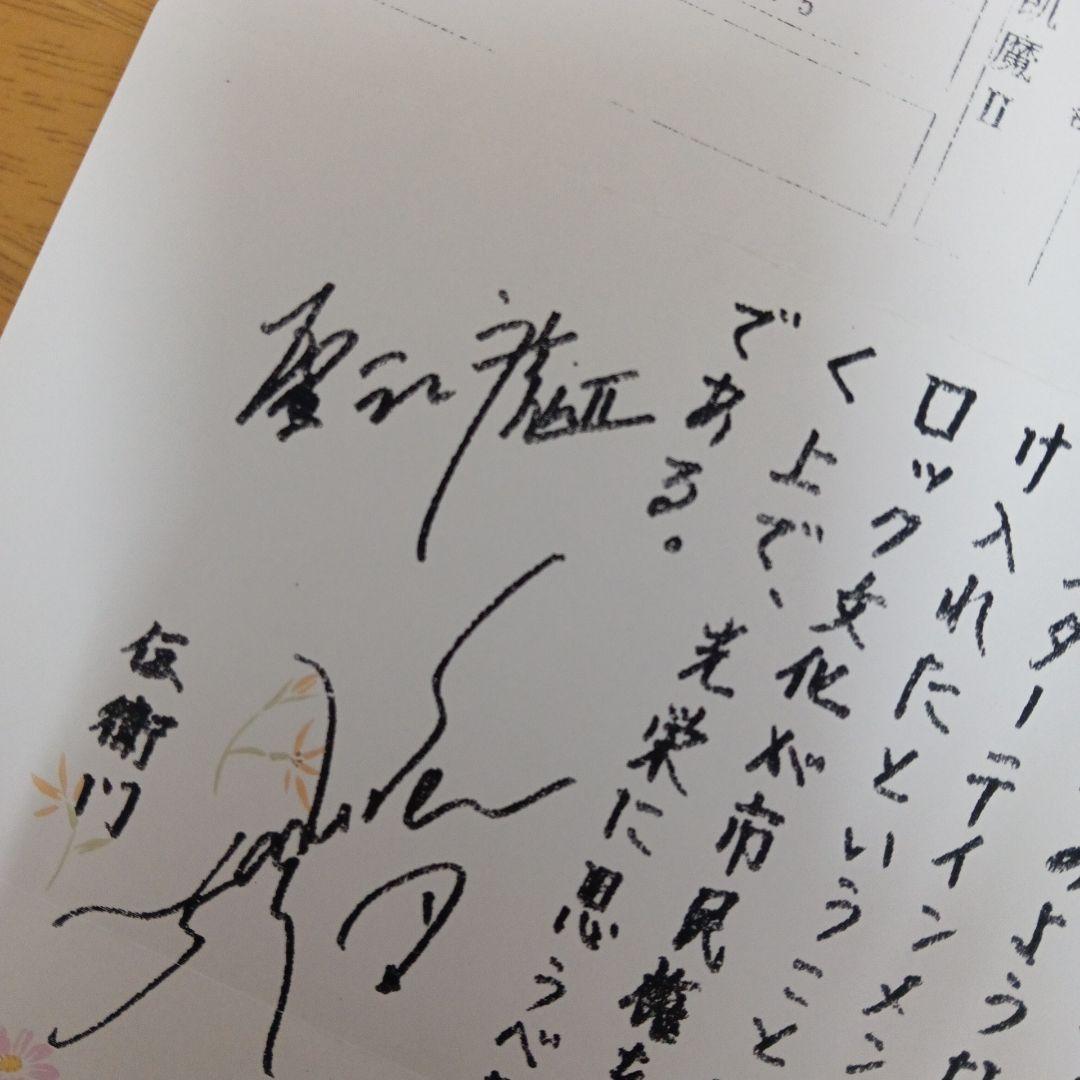 飢魔II
のような
ターテインメン
け入れたということ
ロック文化が市民権を
く上で、光栄に思うべ
である。
聖飢魔II